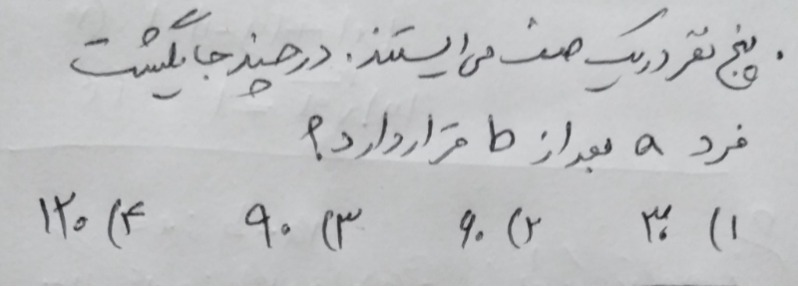 . پنج نفر در یک صف می‌ایستند. در چند جایگشت
فرد a بعد از b قرار دارد؟
۱) ۳۰ ۲) ۶۰ ۳) ۹۰ ۴) ۱۲۰